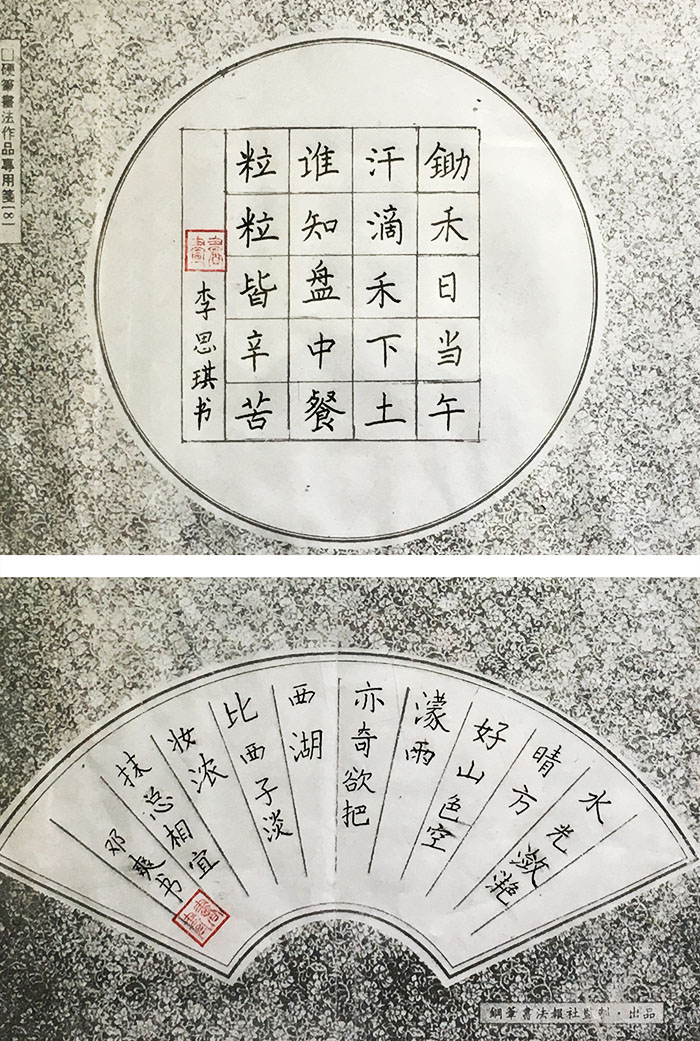 硬筆書法作品專用箋[8]
鋤禾日当午
汗滴禾下土
谁知盘中餐
粒粒皆辛苦
李思琪书
水光潋滟
晴方
好山色空
濛雨
亦奇欲把
西湖
比西子淡
妆浓
抹总相宜
邓爽书
鋼筆書法報社監制·出品